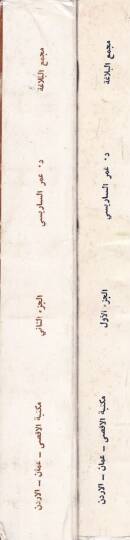 مجمع البلاغة
د. عمر الساريسي
الجزء الأول
مكتبة الاقصى – عمان – الاردن
مجمع البلاغة
د. عمر الساريسي
الجزء الثاني
مكتبة الاقصى – عمان – الاردن